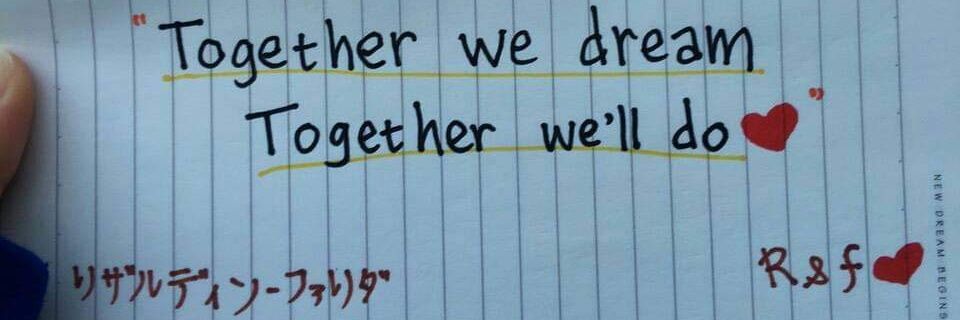 "Together we dream
Together we'll do"
リザルディン-ファリダ
R&f
NEW DREAM BEGINS